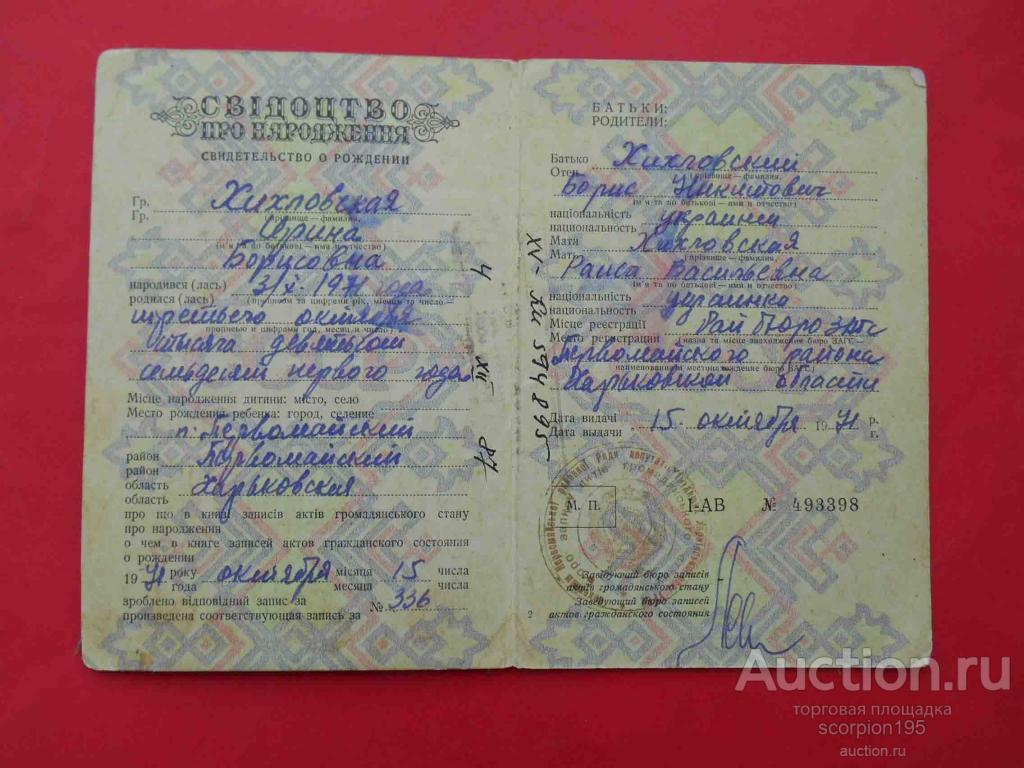 СВІДОЦТВО
ПРО НАРОДЖЕННЯ
СВИДЕТЕЛЬСТВО О РОЖДЕНИИ
Гр. Хихловская
Гр. (прізвище — фамилия,
Ирина
ім'я та по батькові — имя и отчество)
Борисовна
народився (лась) 3/X - 1971 года
родился (лась) (прописом та цифрами рік, місяць та число
третьего октября
прописью и цифрами год, месяц и число)
тысяча девятьсот
семьдесят первого года
Місце народження дитини: місто, село
Место рождения ребенка: город, селение
п. Первомайский
район Первомайский
район
область Харьковская
область
про що в книзі записів актів громадянського стану
про народження
о чем в книге записей актов гражданского состояния
о рождении
19 71 року октября місяця 15 числа
года месяца числа
зроблено відповідний запис за № 336
произведена соответствующая запись за
4 XII 87
БАТЬКИ:
РОДИТЕЛИ:
Батько Хихловский
Отец (прізвище — фамилия,
Борис Никитович
ім'я та по батькові — имя и отчество)
національність украинец
национальность
Мати Хихловская
Мать (прізвище — фамилия,
Раиса Васильевна
ім'я та по батькові — имя и отчество)
національність украинка
национальность
Місце реєстрації Рай бюро загс
Место регистрации (назва та місце знаходження бюро ЗАГС —
Первомайского района
наименование и местонахождение бюро ЗАГС)
Харьковской области
Дата видачі 15 октября 19 71 р.
Дата выдачи г.
594895
М. П.
I-АВ № 493398
Завідуючий бюро записів
актів громадянського стану
Заведующий бюро записей
актов гражданского состояния
2
Auction.ru
торговая площадка
scorpion195
auction.ru